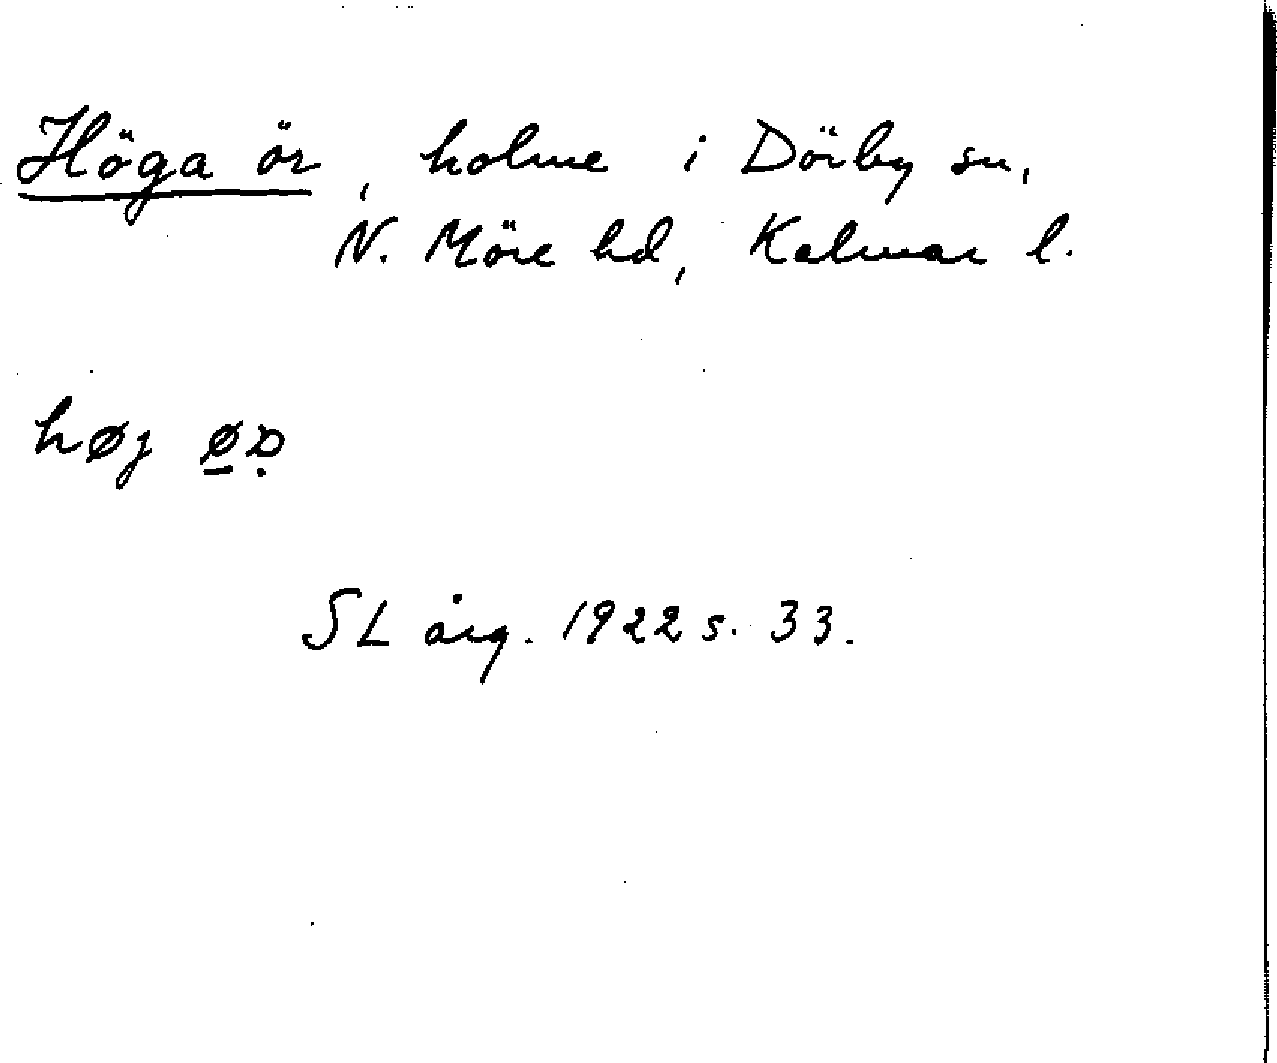 Höga ör, holme i Dörby sn,
N. Möre hd, Kalmar l.
høj
SL årg. 1922 s. 33.